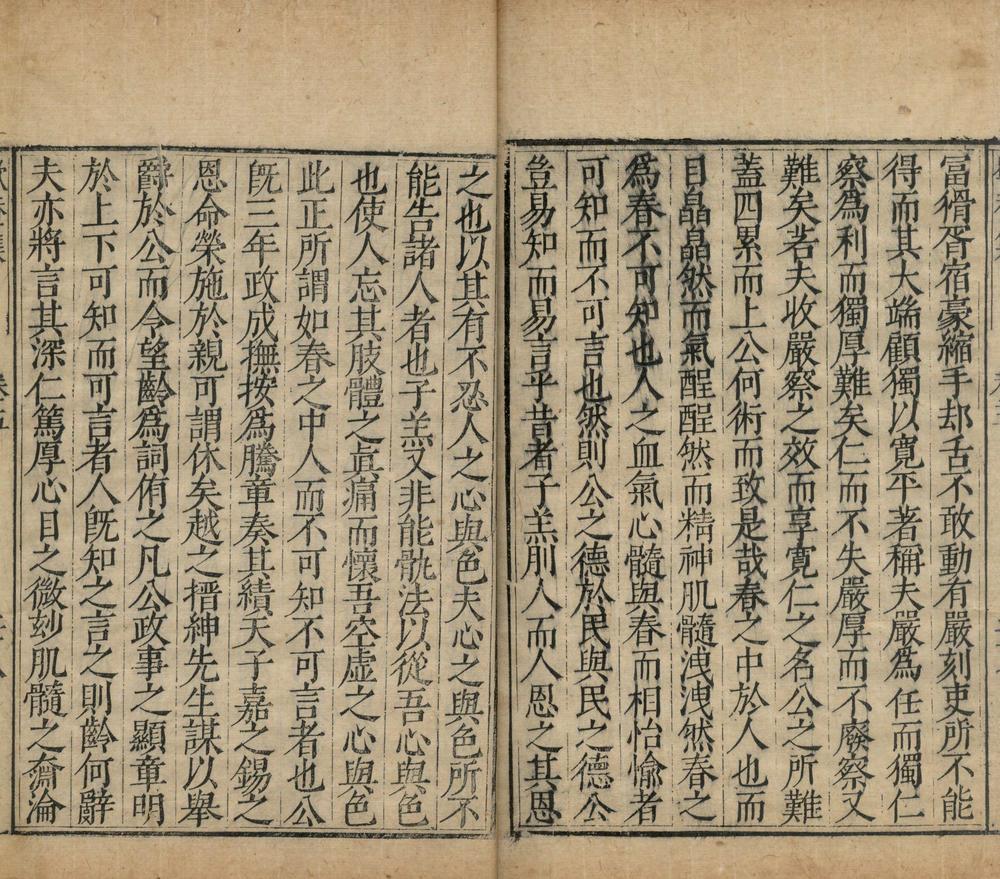 冨猾胥宿豪縮手却舌不敢動有嚴刻吏所不能
得而其大端顧獨以寛平著稱夫嚴爲任而獨仁
察爲利而獨厚難矣仁而不失嚴厚而不廢察又
難矣若夫收嚴察之效而享寛仁之名公之所難
蓋四累而上公何術而致是哉春之中於人也而
目晶晶然而氣醒醒然而精神肌髓洩洩然春之
爲春不可知也人之血氣心髓與春而相怡愉者
可知而不可言也然則公之德於民與民之德公
豈易知而易言乎昔者子羔刖人而人恩之其恩
之也以其有不忍人之心與色夫心之與色所不
能告諸人者也子羔又非能骫法以從吾心與色
也使人忘其肢體之眞痛而懷吾空虚之心與色
此正所謂如春之中人而不可知不可言者也公
旣三年政成撫按爲騰章奏其績天子嘉之錫之
恩命榮施於親可謂休矣越之搢紳先生謀以舉
爵於公而令望齡爲詞侑之凡公政事之顯章明
於上下可知而可言者人旣知之言之則齡何辭
夫亦將言其深仁篤厚心目之微玅肌髓之奫淪